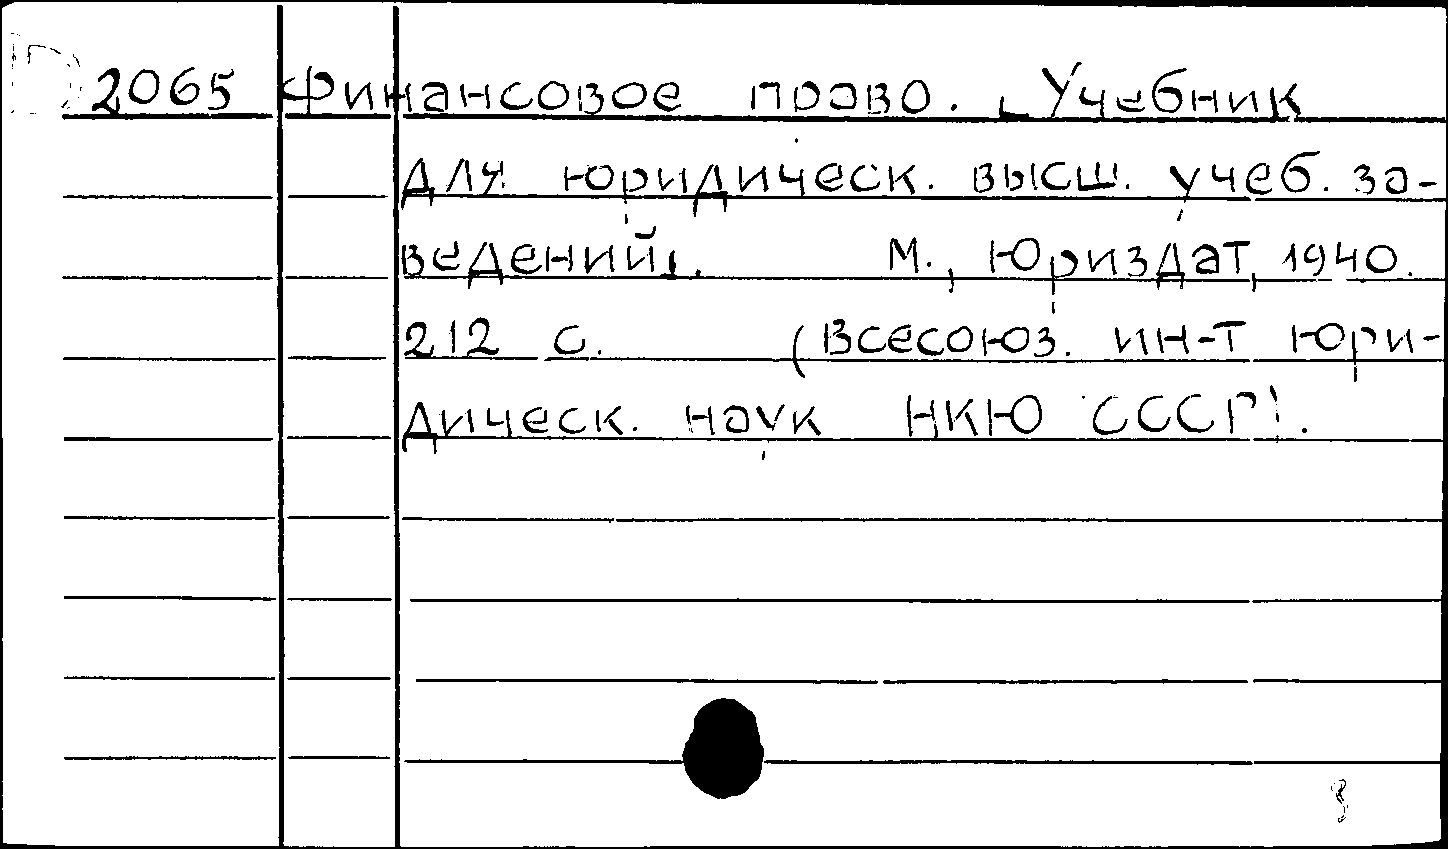 2065 Финансовое право. [Учебник
для юридическ. высш. учеб. за-
ведений]. М., Юриздат, 1940.
212 с. (Всесоюз. ин-т юри-
дическ. наук НКЮ СССР).